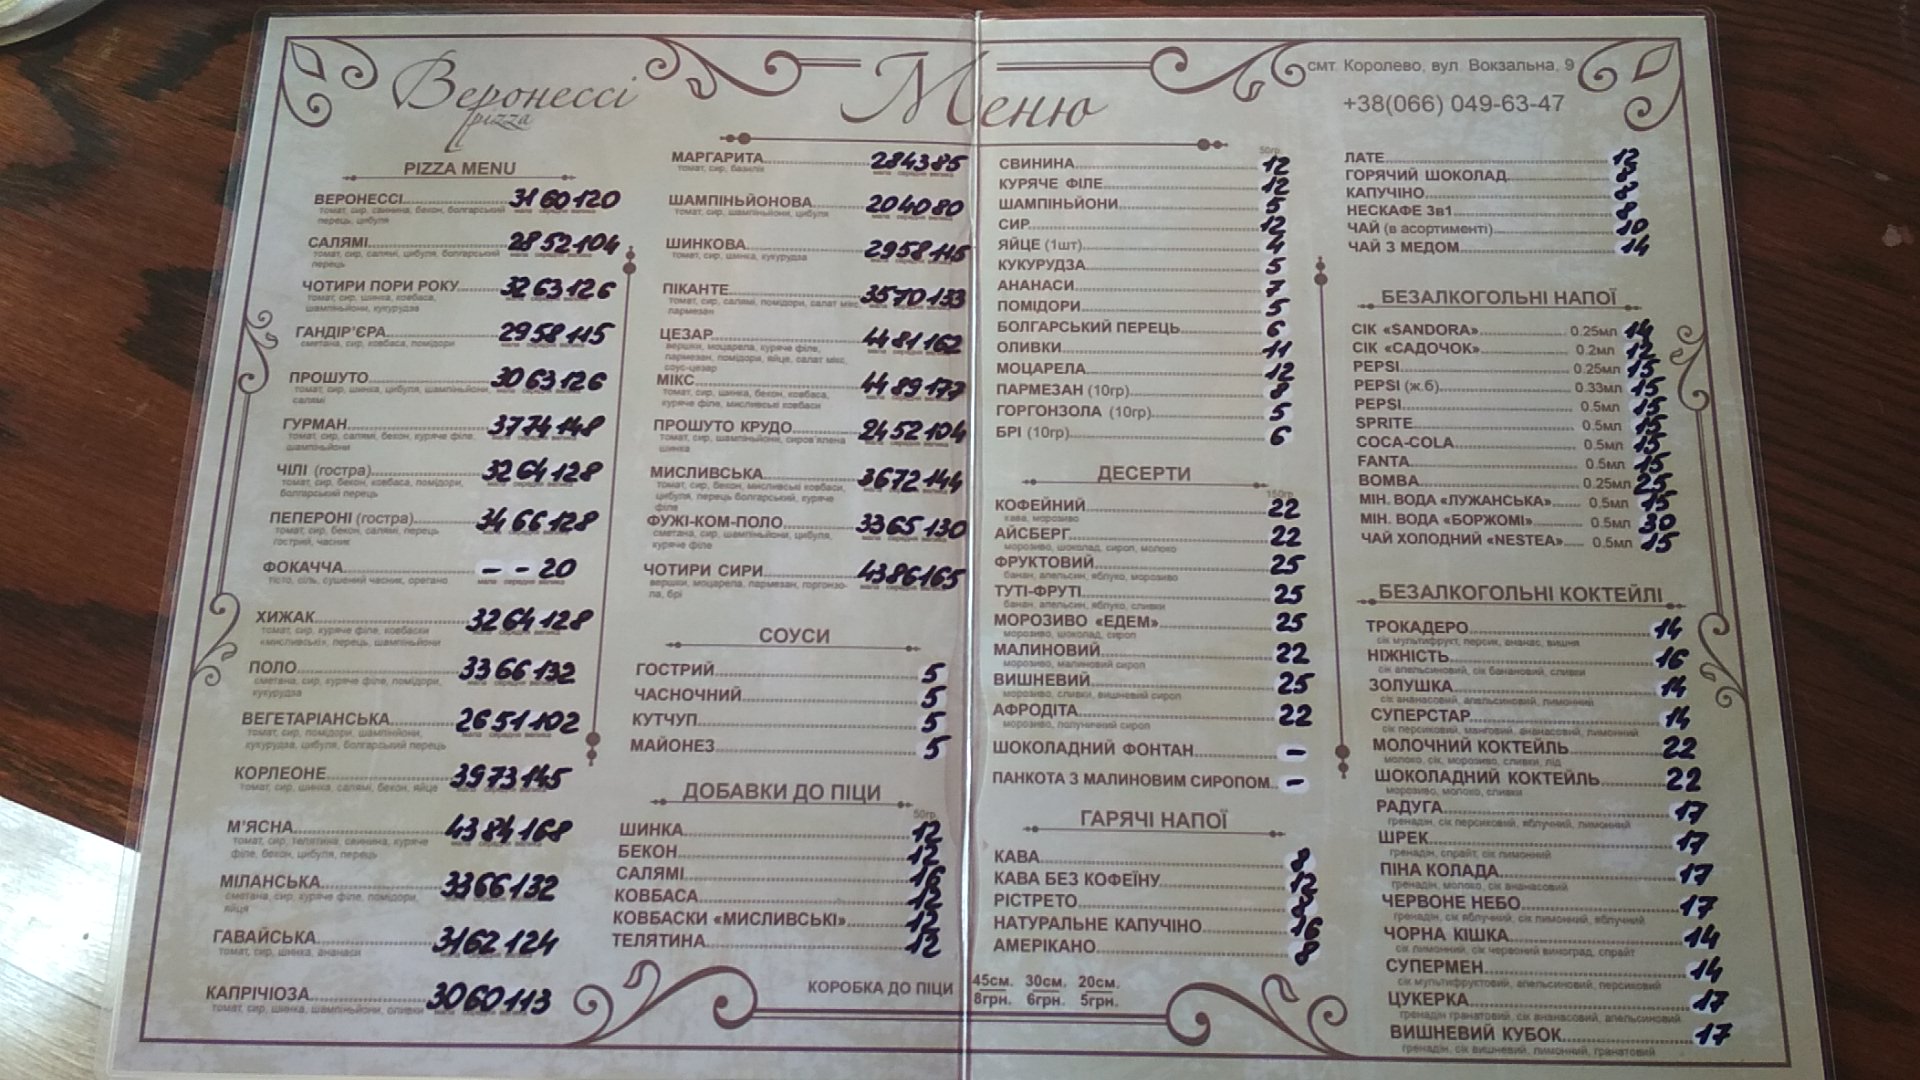 Веронессі
pizza
Меню
смт. Королево, вул. Вокзальна, 9
+38(066) 049-63-47
PIZZA MENU
ВЕРОНЕССІ 31 60 120
томат, сир, свинина, бекон, болгарський
перець, цибуля
САЛЯМІ 28 52 104
томат, сир, салямі, цибуля, болгарський
перець
ЧОТИРИ ПОРИ РОКУ 32 63 126
томат, сир, шинка, ковбаса,
шампіньйони, кукурудза
ГАНДІР'ЄРА 29 58 115
сметана, сир, ковбаса, помідори
ПРОШУТО 30 63 126
томат, сир, шинка, цибуля, шампіньйони,
салямі
ГУРМАН 37 74 148
томат, сир, салямі, бекон, куряче філе,
шампіньйони
ЧІЛІ (гостра) 32 64 128
томат, сир, бекон, ковбаса, помідори,
болгарський перець
ПЕПЕРОНІ (гостра) 34 66 128
томат, сир, бекон, салямі, перець
гострий, часник
ФОКАЧЧА – – 20
тісто, сіль, сушений часник, орегано
ХИЖАК 32 64 128
томат, сир, куряче філе, ковбаски
«мисливські», перець, шампіньйони
ПОЛО 33 66 132
сметана, сир, куряче філе, помідори,
кукурудза
ВЕГЕТАРІАНСЬКА 26 51 102
томат, сир, помідори, шампіньйони,
кукурудза, цибуля, болгарський перець
КОРЛЕОНЕ 39 73 145
томат, сир, шинка, салямі, бекон, яйце
М'ЯСНА 43 84 168
томат, сир, телятина, свинина, куряче
філе, бекон, цибуля, перець
МІЛАНСЬКА 33 66 132
сметана, сир, куряче філе, помідори,
яйця
ГАВАЙСЬКА 31 62 124
томат, сир, шинка, ананаси
КАПРІЧІОЗА 30 60 113
томат, сир, шинка, шампіньйони, оливки
МАРГАРИТА 28 43 85
томат, сир, базилік
ШАМПІНЬЙОНОВА 20 40 80
томат, сир, шампіньйони, цибуля
ШИНКОВА 29 58 115
томат, сир, шинка, кукурудза
ПІКАНТЕ 35 70 133
томат, сир, салямі, помідори, салат мікс,
пармезан
ЦЕЗАР 44 81 162
вершки, моцарела, куряче філе,
пармезан, помідори, яйце, салат мікс,
соус-цезар
МІКС 44 89 177
томат, сир, шинка, бекон, ковбаса,
куряче філе, мисливські ковбаси
ПРОШУТО КРУДО 24 52 104
томат, сир, шампіньйони, сиров'ялена
шинка
МИСЛИВСЬКА 36 72 144
томат, сир, бекон, мисливські ковбаси,
цибуля, перець болгарський, куряче
філе
ФУЖІ-КОМ-ПОЛО 33 65 130
сметана, сир, шампіньйони, цибуля,
куряче філе
ЧОТИРИ СИРИ 43 86 165
вершки, моцарела, пармезан, горгонзо-
ла, брі
СОУСИ
ГОСТРИЙ 5
ЧАСНОЧНИЙ 5
КУТЧУП 5
МАЙОНЕЗ 5
ДОБАВКИ ДО ПІЦИ
50гр.
ШИНКА 12
БЕКОН 12
САЛЯМІ 16
КОВБАСА 12
КОВБАСКИ «МИСЛИВСЬКІ» 12
ТЕЛЯТИНА 12
КОРОБКА ДО ПІЦИ 45см. 30см. 20см.
8грн. 6грн. 5грн.
50гр.
СВИНИНА 12
КУРЯЧЕ ФІЛЕ 12
ШАМПІНЬЙОНИ 5
СИР 12
ЯЙЦЕ (1шт) 4
КУКУРУДЗА 5
АНАНАСИ 7
ПОМІДОРИ 5
БОЛГАРСЬКИЙ ПЕРЕЦЬ 6
ОЛИВКИ 11
МОЦАРЕЛА 12
ПАРМЕЗАН (10гр) 8
ГОРГОНЗОЛА (10гр) 5
БРІ (10гр) 6
ДЕСЕРТИ
150гр.
КОФЕЙНИЙ 22
кава, морозиво
АЙСБЕРГ 22
морозиво, шоколад, сироп, молоко
ФРУКТОВИЙ 25
банан, апельсин, яблуко, морозиво
ТУТІ-ФРУТІ 25
банан, апельсин, яблуко, сливки
МОРОЗИВО «ЕДЕМ» 25
морозиво, шоколад, сироп
МАЛИНОВИЙ 22
морозиво, малиновий сироп
ВИШНЕВИЙ 25
морозиво, сливки, вишневий сироп
АФРОДІТА 22
морозиво, полуничний сироп
ШОКОЛАДНИЙ ФОНТАН –
ПАНКОТА З МАЛИНОВИМ СИРОПОМ –
ГАРЯЧІ НАПОЇ
КАВА 8
КАВА БЕЗ КОФЕЇНУ 12
РІСТРЕТО 8
НАТУРАЛЬНЕ КАПУЧІНО 16
АМЕРІКАНО 8
ЛАТЕ 12
ГОРЯЧИЙ ШОКОЛАД 8
КАПУЧІНО 8
НЕСКАФЕ 3в1 8
ЧАЙ (в асортименті) 10
ЧАЙ З МЕДОМ 14
БЕЗАЛКОГОЛЬНІ НАПОЇ
СІК «SANDORA» 0.25мл 14
СІК «САДОЧОК» 0.2мл 12
PEPSI 0.25мл 15
PEPSI (ж.б) 0.33мл 15
PEPSI 0.5мл 15
SPRITE 0.5мл 15
COCA-COLA 0.5мл 15
FANTA 0.5мл 15
BOMBA 0.25мл 25
МІН. ВОДА «ЛУЖАНСЬКА» 0.5мл 15
МІН. ВОДА «БОРЖОМІ» 0.5мл 30
ЧАЙ ХОЛОДНИЙ «NESTEA» 0.5мл 15
БЕЗАЛКОГОЛЬНІ КОКТЕЙЛІ
ТРОКАДЕРО 14
сік мультифрукт, персик, ананас, вишня
НІЖНІСТЬ 16
сік апельсиновий, сік банановий, сливки
ЗОЛУШКА 14
сік ананасовий, апельсиновий, лимонний
СУПЕРСТАР 14
сік персиковий, манговий, ананасовий, лимонний
МОЛОЧНИЙ КОКТЕЙЛЬ 22
молоко, сік, морозиво, сливки, лід
ШОКОЛАДНИЙ КОКТЕЙЛЬ 22
морозиво, молоко, сливки
РАДУГА 17
гренадін, сік персиковий, яблучний, лимонний
ШРЕК 17
гренадін, спрайт, сік лимонний
ПІНА КОЛАДА 17
гренадін, молоко, сік ананасовий
ЧЕРВОНЕ НЕБО 17
гренадін, сік яблучний, сік лимонний, яблучний
ЧОРНА КІШКА 14
сік лимонний, сік червоний виноград, спрайт
СУПЕРМЕН 14
сік мультифруктовий, апельсиновий, персиковий
ЦУКЕРКА 17
гренадін гранатовий, сік ананасовий, апельсиновий
ВИШНЕВИЙ КУБОК 17
гренадін, сік вишневий, лимонний, гранатовий